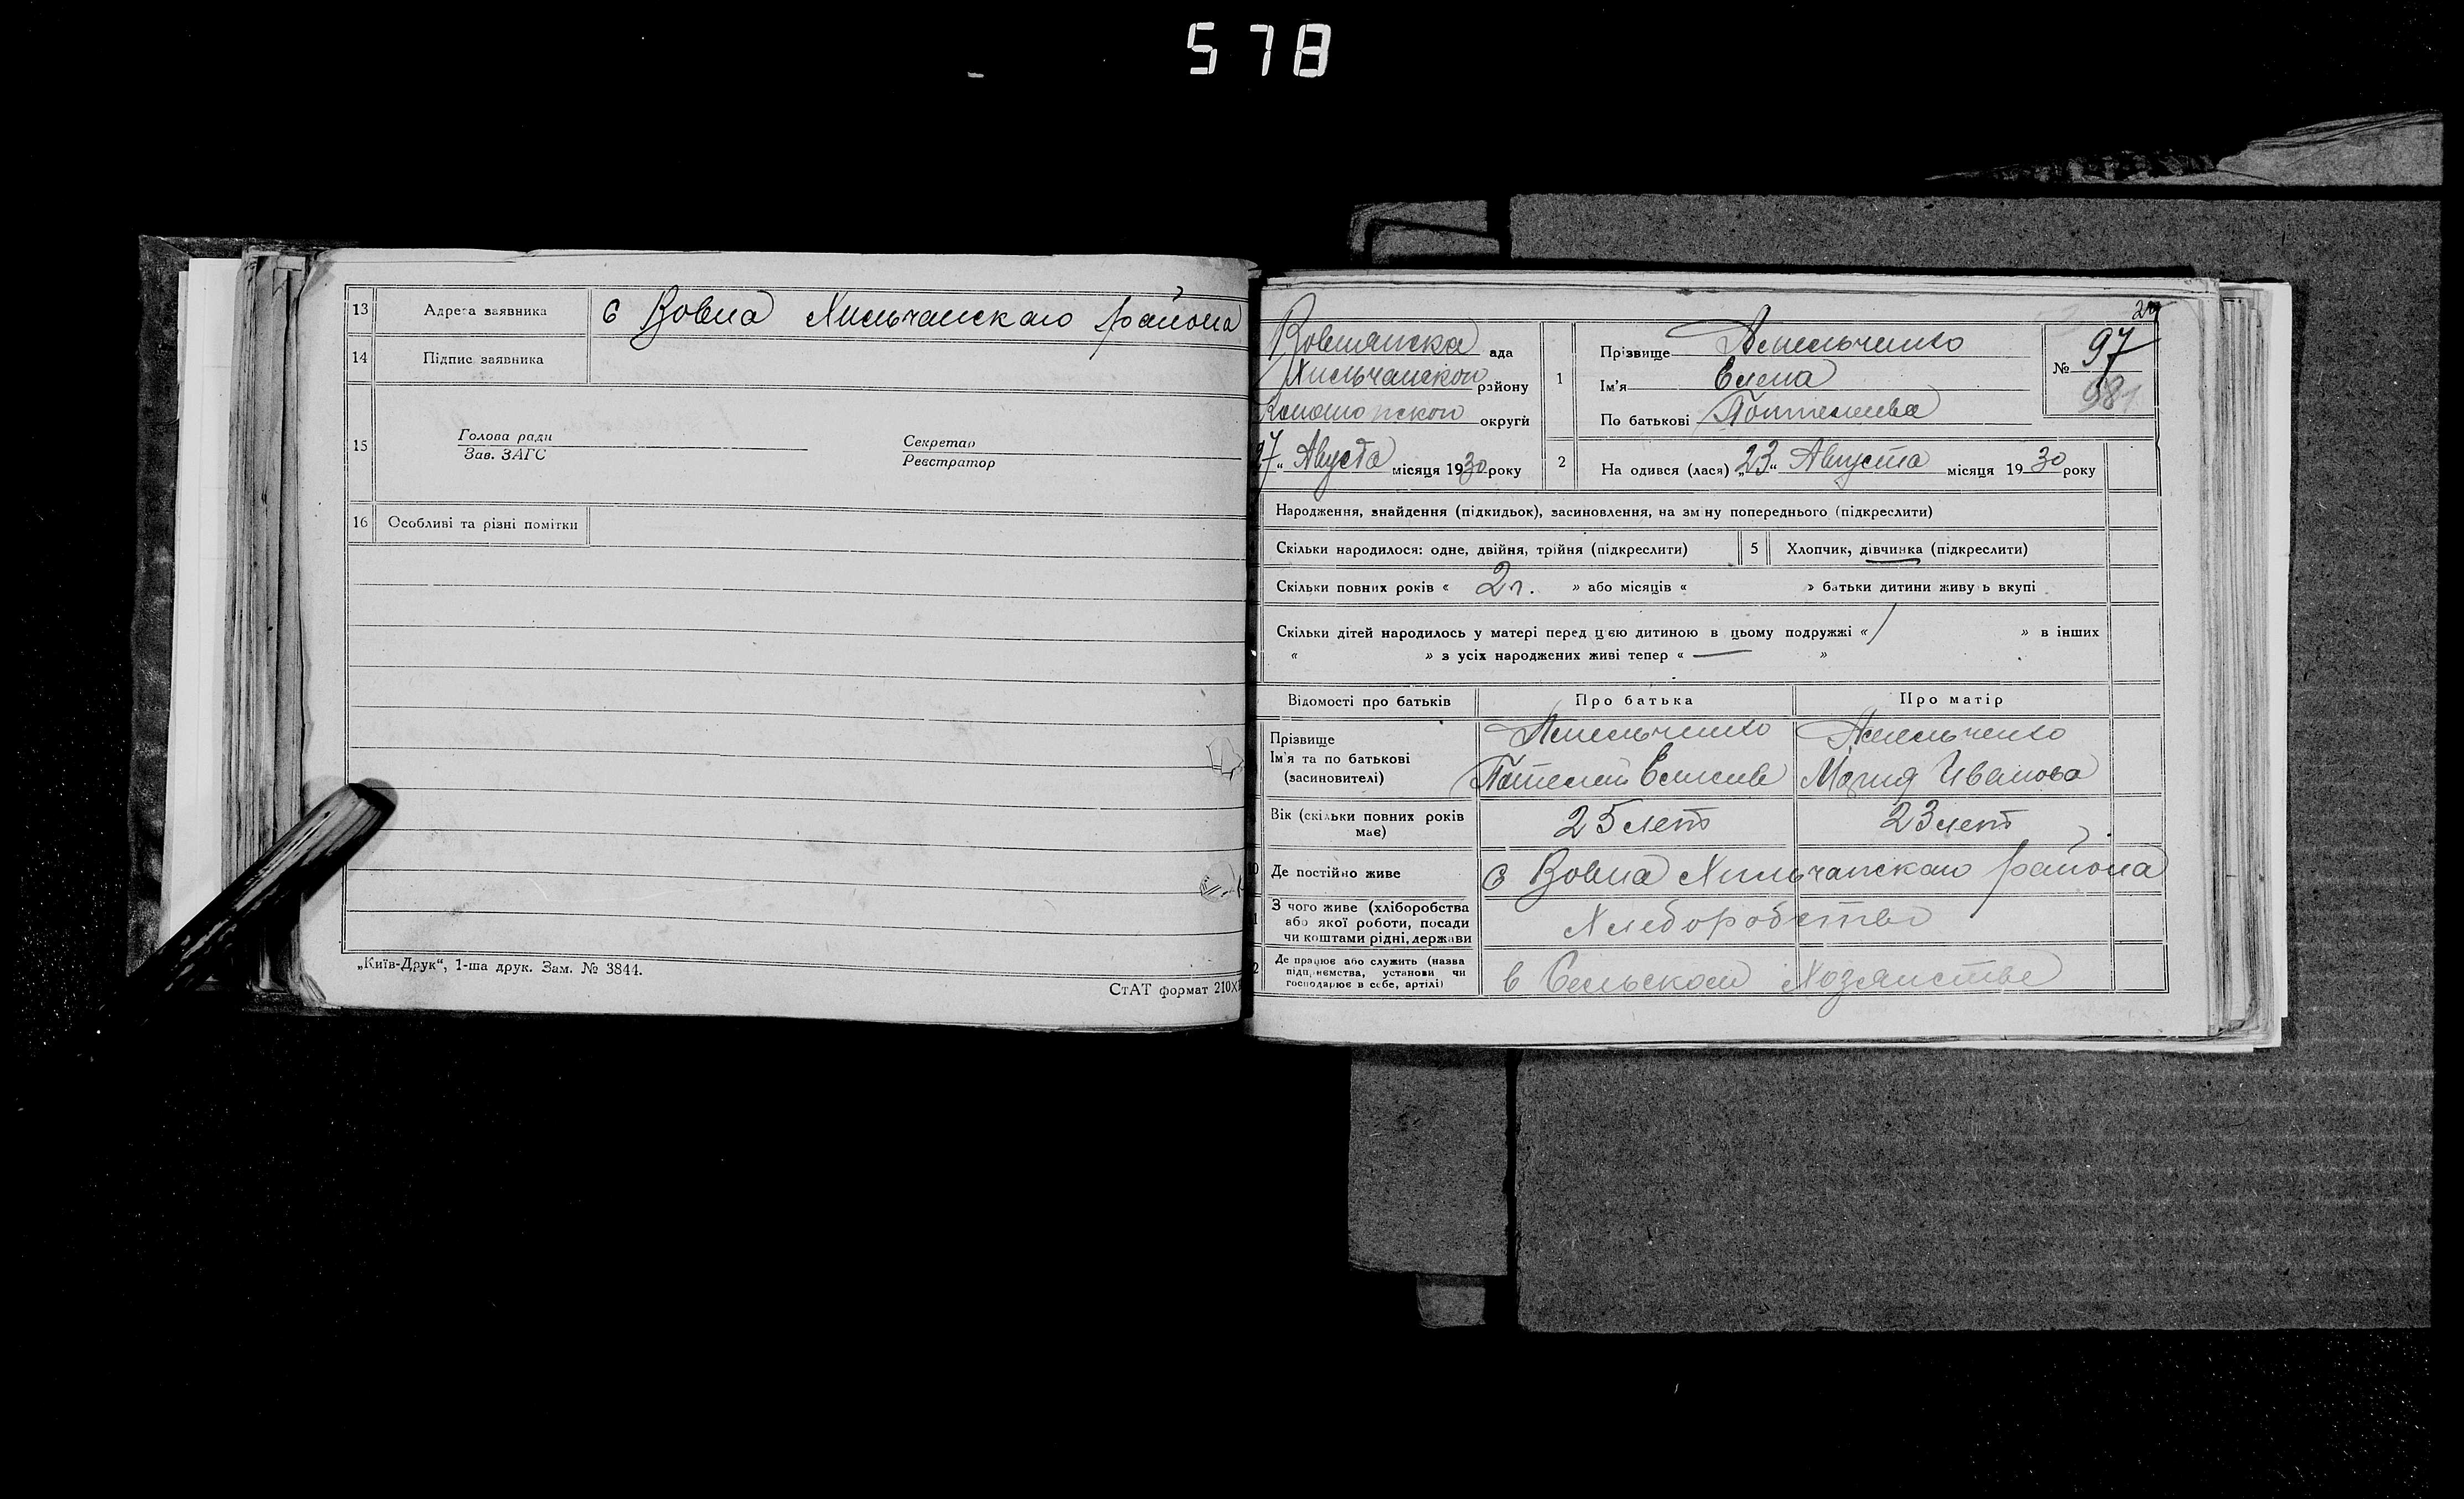 578
13 Адреса заявника с Вовна Хильчанскаго района
14 Підпис заявника
15 Голова ради Секретар
Зав. ЗАГС Реєстратор
16 Особливі та різні помітки
„Київ-Друк“, 1-ша друк. Зам. № 3844.
СтАТ формат 210X
Вовнянска ада
Хильчанскои району
округи
27 „ Августа місяця 1930 року
1 Прізвище Амельченко
Ім’я Елена
По батькові
№ 97
981
2 На одився (лася) „23“ Августа місяця 1930 року
Народження, знайдення (підкидьок), засиновлення, на зм ну попереднього (підкреслити)
Скільки народилося: одне, двійня, трійня (підкреслити) 5 Хлопчик, дівчинка (підкреслити)
Скільки повних років « 2 г. » або місяців « » батьки дитини живу ь вкупі
Скільки дітей народилось у матері перед цією дитиною в цьому подружжі « / » в інших
« » з усіх народжених живі тепер « — »
Відомості про батьків Про батька Про матір
Прізвище Амельченко Амельченко
Ім’я та по батькові Мария Иванова
(засиновителі)
Вік (скільки повних років 25 лет 23 лет
має)
Де постійно живе с Вовна Хильчанскаго района
З чого живе (хліборобства Хлеборобство
або якої роботи, посади
чи коштами рідні, держави
Де працює або служить (назва в Сельском Хозянстве
підприємства, установи чи
господарює в себе, артілі)